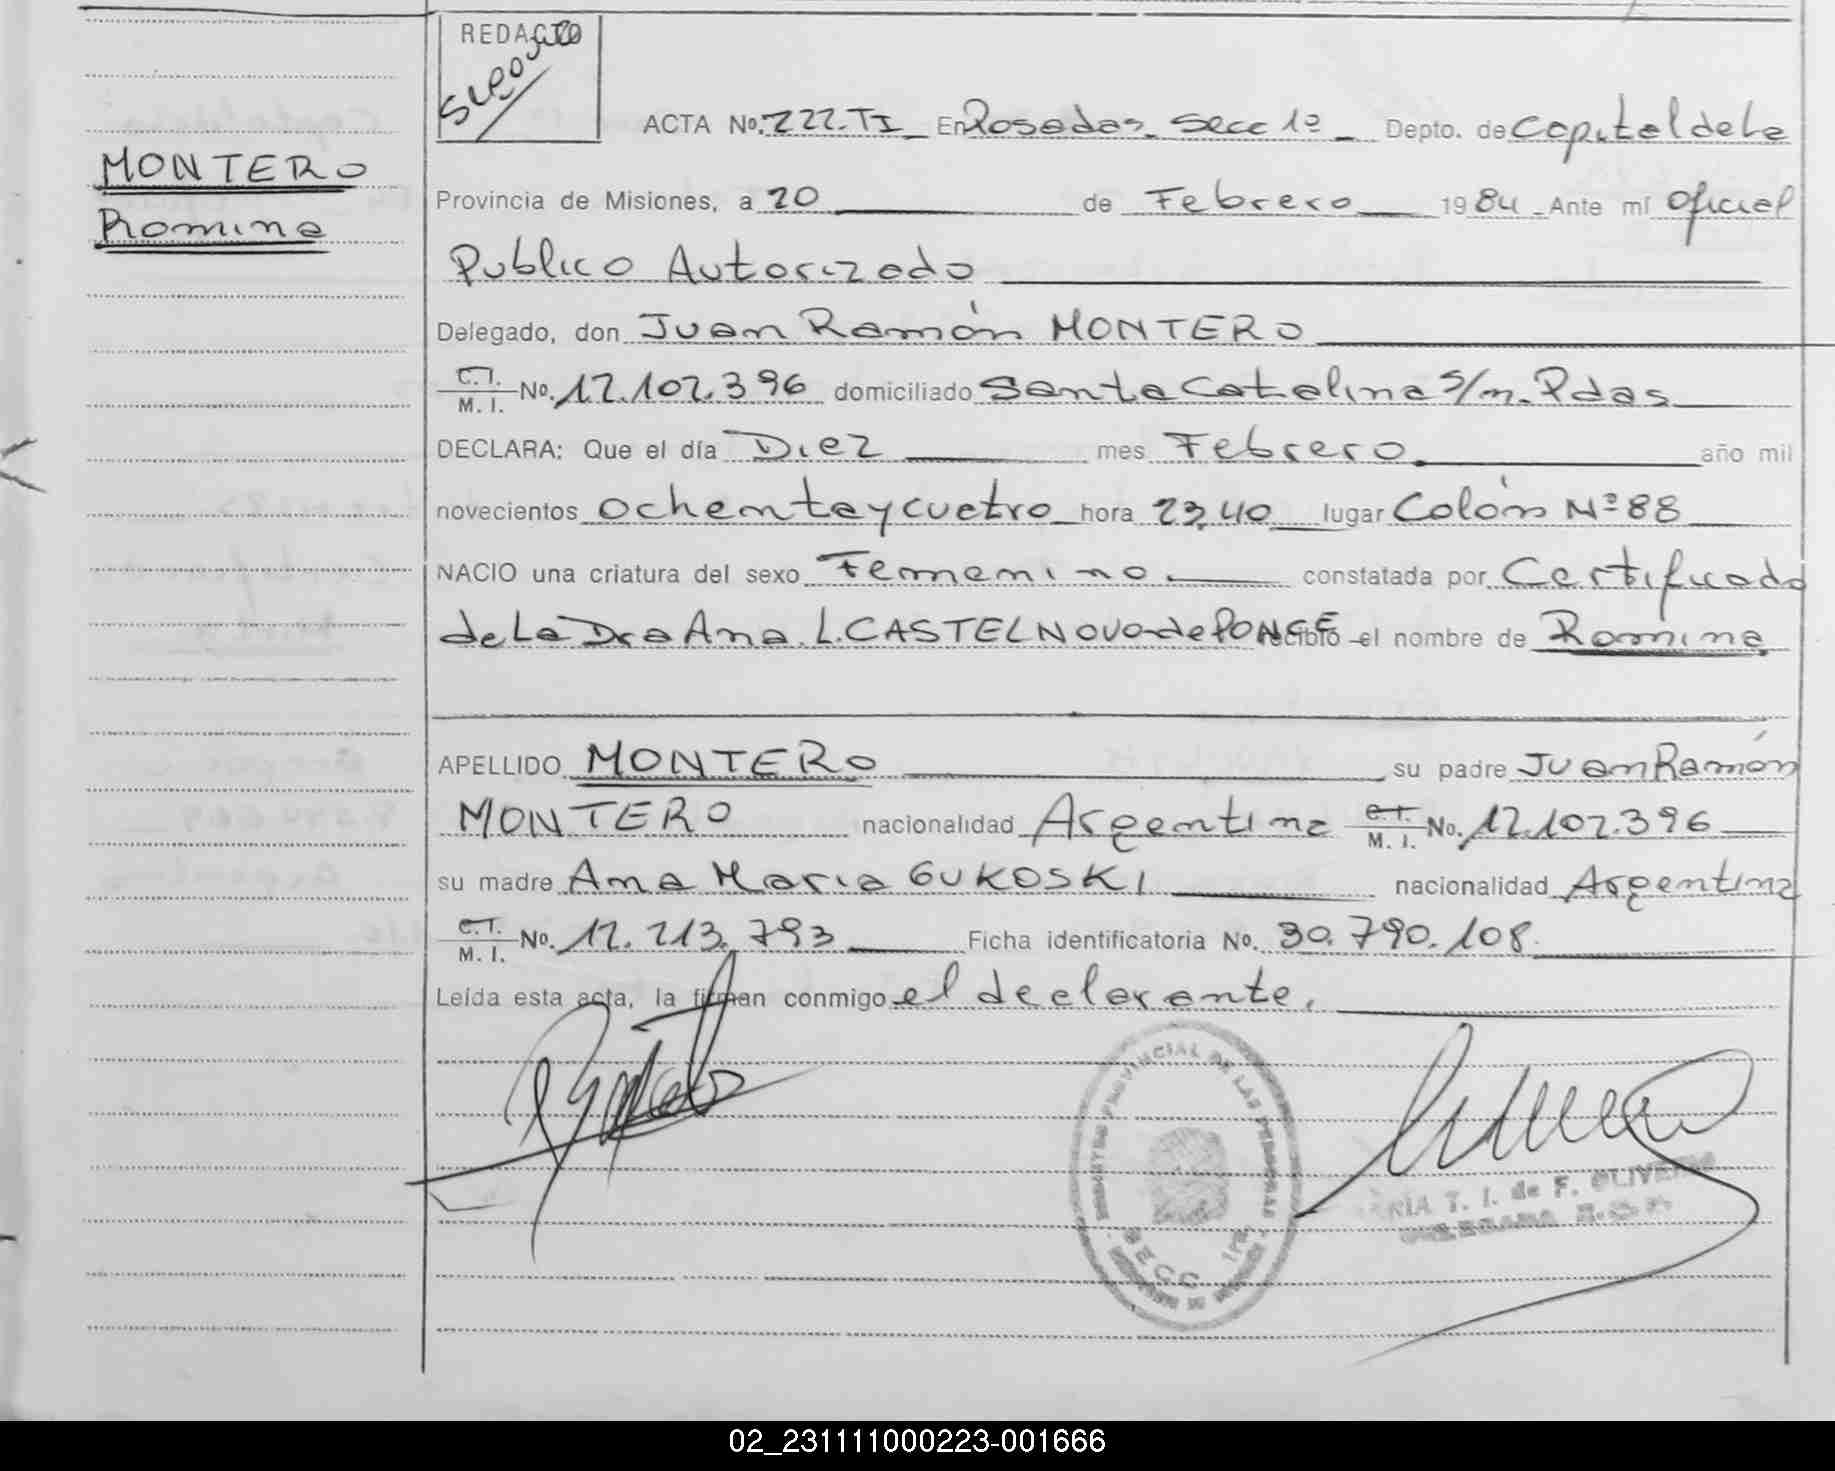 REDACTO
MONTERO
Romina
ACTA No. 222.TI En Posadas. Secc 1º Depto. de Capital de la
Provincia de Misiones, a 20 de Febrero 1984 Ante mí Oficial
Publico Autorizado
Delegado, don Juan Ramón MONTERO
C.I. M. I. No. 12.102.396 domiciliado Santa Catalina s/n. Pdas
DECLARA: Que el día Diez mes Febrero año mil
novecientos ochenta y cuatro hora 23,40 lugar Colón Nº 88
NACIO una criatura del sexo Femenino. constatada por Certificado
de la Dra Ana. L. CASTELNOVO de PONCE recibió el nombre de Romina
APELLIDO MONTERO su padre Juan Ramón
MONTERO nacionalidad Argentina C.I. M. I. No. 12.102.396
su madre Ana Maria GUKOSKI nacionalidad Argentina
C.I. M. I. No. 12.213.793 Ficha identificatoria No. 30.790.108
Leída esta acta, la firman conmigo el declarante.
PROVINCIAL DE LAS PERSONAS
SECC 1ra
T. I. de F. OLIVEIRA
02_231111000223-001666